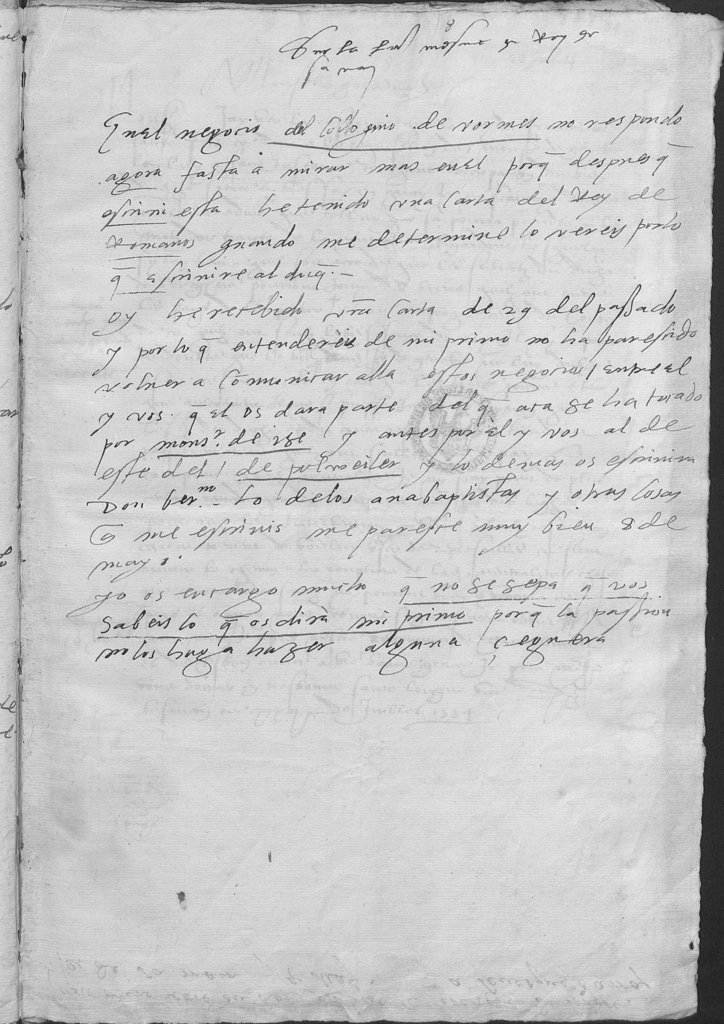 En el negocio del de vormes no respondo
agora fasta a mirar mas en el porq̄ despues q̄
escriui esta he tenido vna carta del Rey de
Romanos quando me determine lo vereis por lo
q̄ escriuire al duq̄.-
oy he recebido vr̄a carta de 29 del passado
y por lo q̄ entendereis de mi primo no ha parescido
voluer a comunicar alla estos negocios / entre el
y vos. q̄ el os dara parte del q̄ aca se ha tratado
por monsr. de y antes por el y vos al de
este del / de polweiler y lo demas os escriuira
Don ber.no- Lo de los anabaptistas y otras cosas
q̄ me escriuis me paresce muy bien 8 de
mayo.
yo os encargo mucho q̄ no se sepa q̄ vos
sabeis lo q̄ os dira mi primo porq̄ la passion
no los haga hazer alguna ceguera